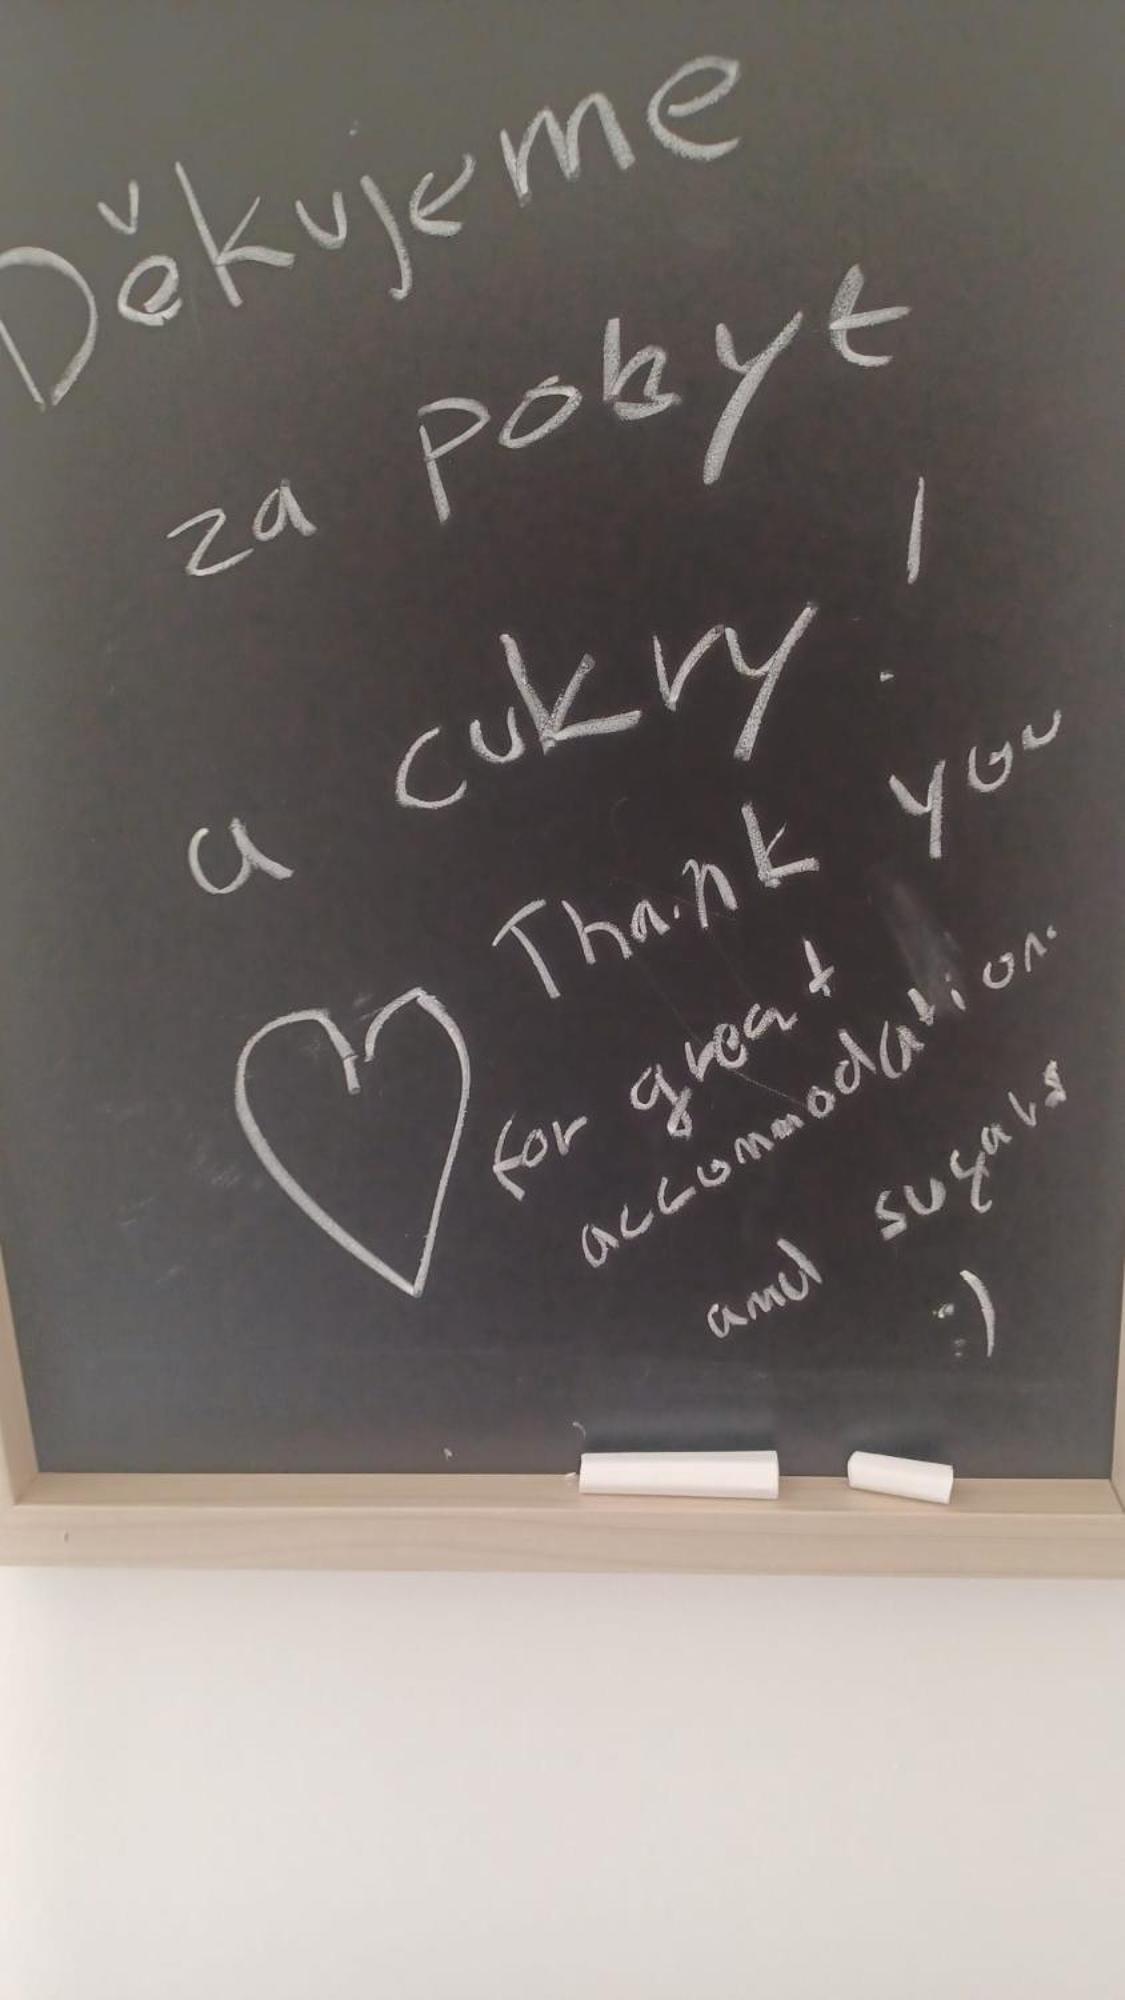 Děkujeme
za pobyt
a cukry!
Thank you
for great
accommodation.
and sugars
:)